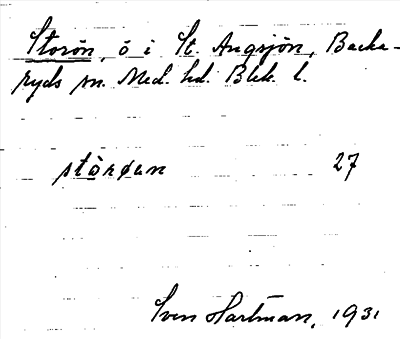 Storön, ö i St. Angsjön, Backa-
ryds sn. Med. hd. Blek. l.
stòrøan 27
Sven Hartman, 1931